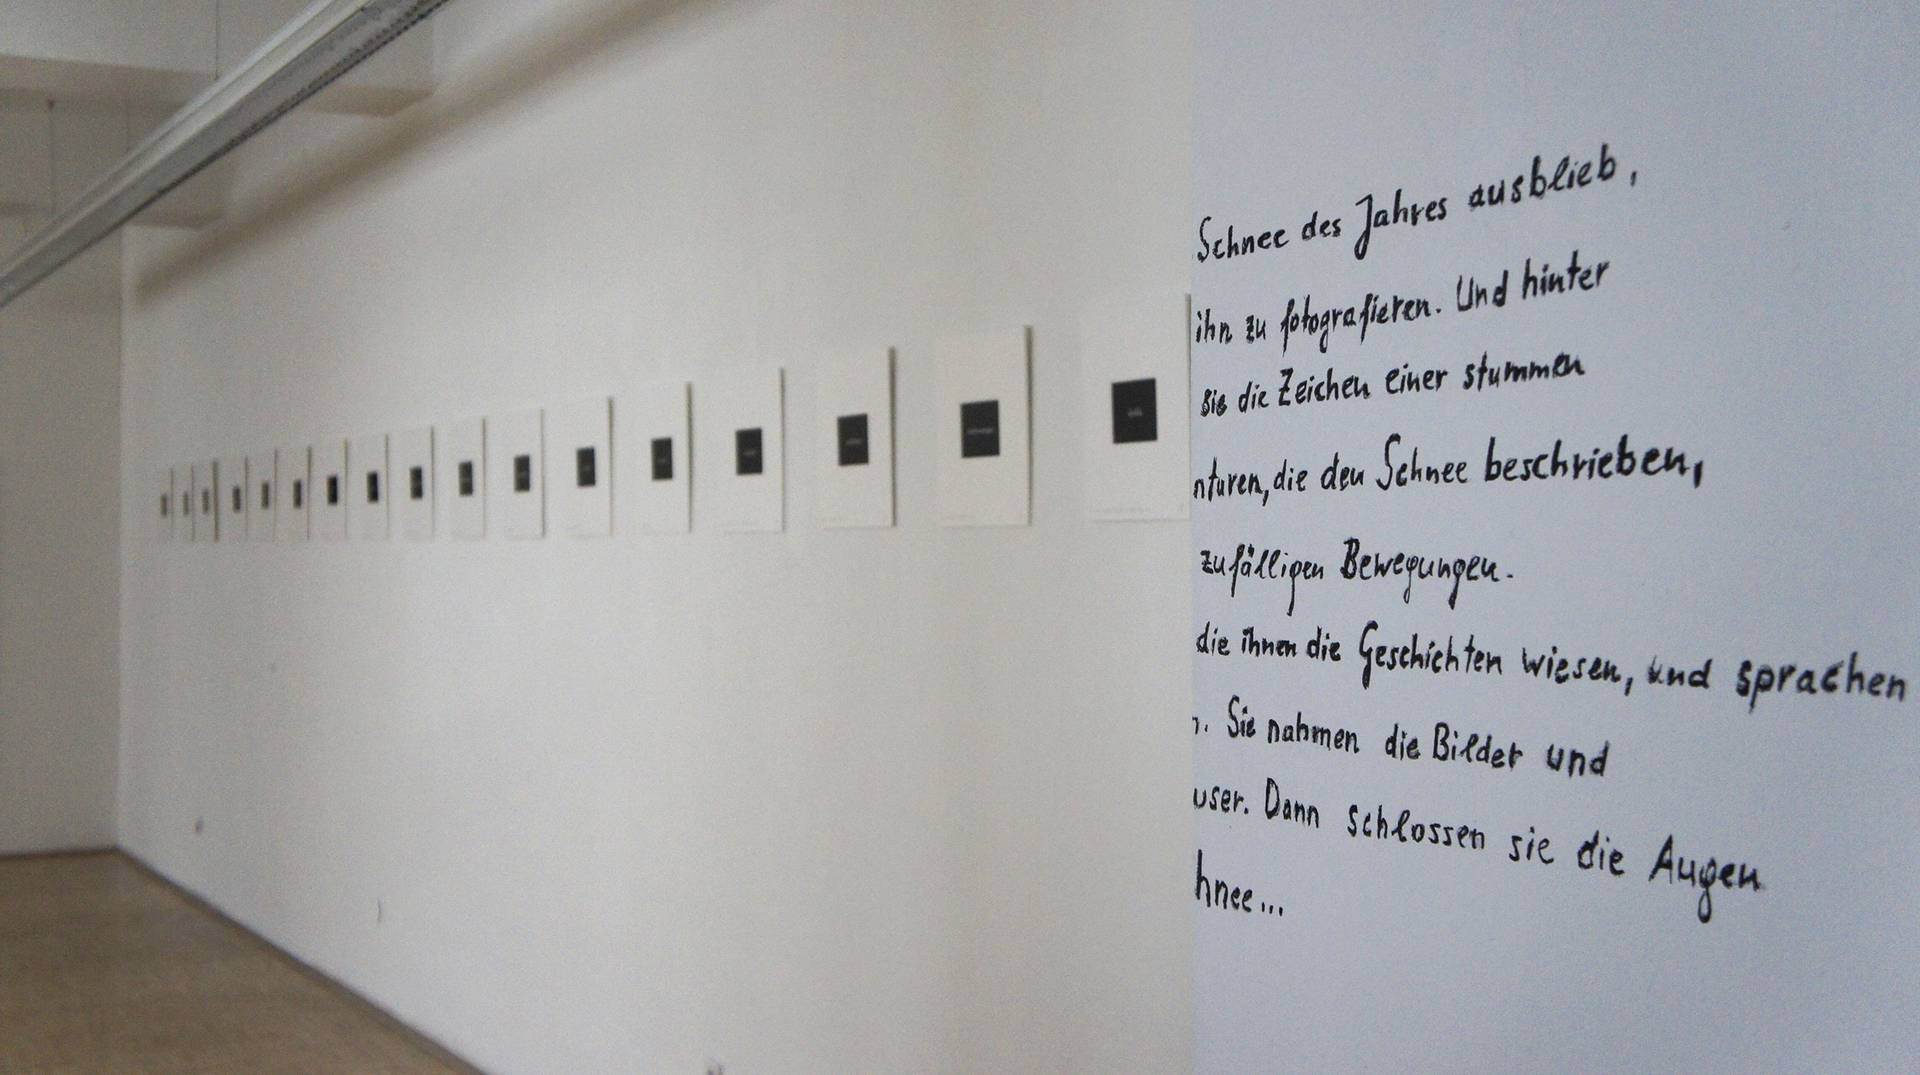 Schnee des Jahres ausblieb,
ihn zu fotografieren. Und hinter
sie die Zeichen einer stummen
nturen, die den Schnee beschrieben,
zufälligen Bewegungen.
die ihnen die Geschichten wiesen, und sprachen
n. Sie nahmen die Bilder und
user. Dann schlossen sie die Augen
hnee...